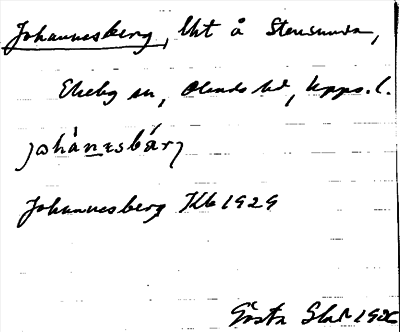 Johannesberg, Uht å Stensunda,
Ekeby sn, Olands hd, Upps. l.
johànesbárj
Johannesberg Kb 1929
Gösta